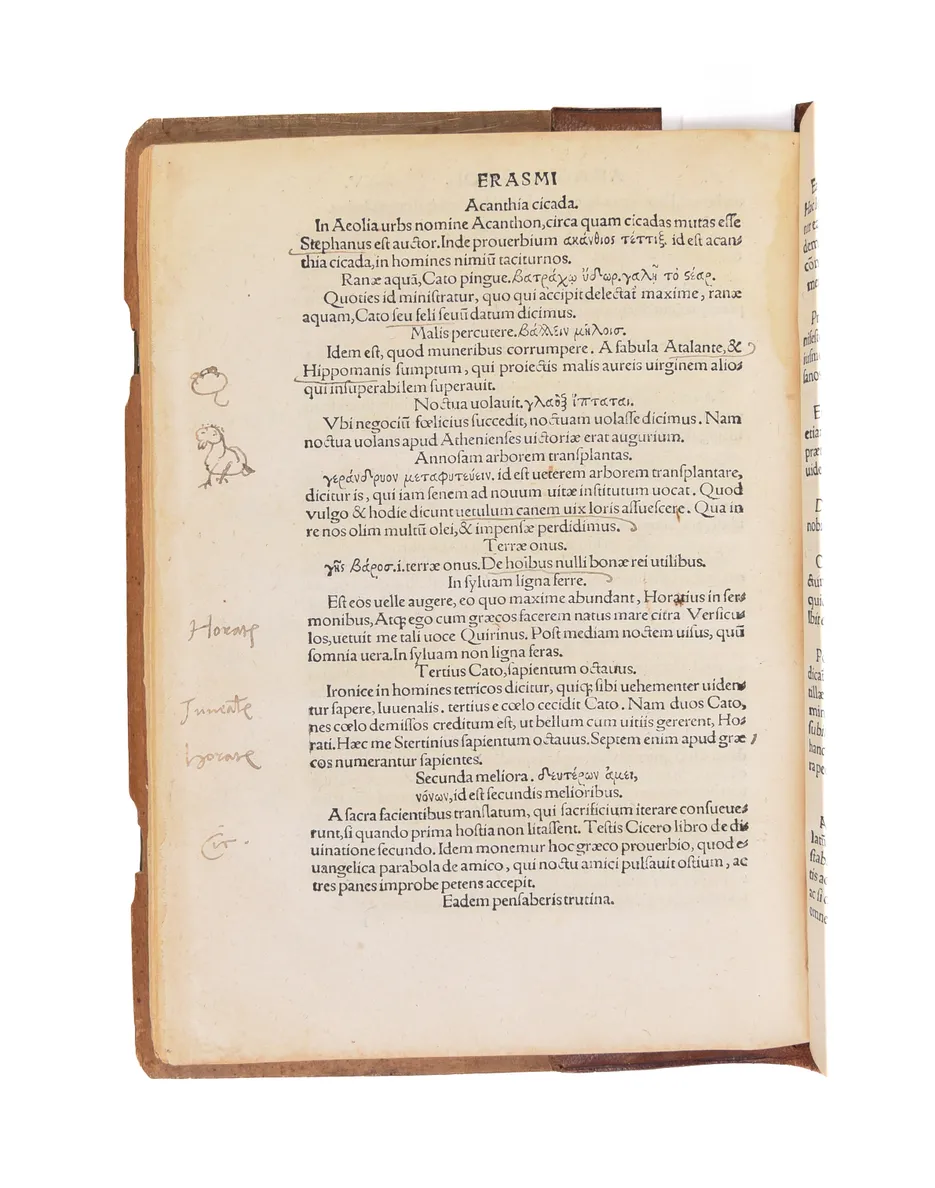 ERASMI
Acanthia cicada.
In Aeolia urbs nomine Acanthon,circa quam cicadas mutas eſſe
Stephanus eſt auctor.Inde prouerbium ακάνθιος τέττιξ. id eſt acan-
thia cicada,in homines nimiū taciturnos.
Ranæ aquā, Cato pingue.βατράχω ὕδωρ.γαλῆ τὸ ϛέαρ.
Quoties id miniſtratur, quo qui accipit delectat maxime, ranæ
aquam,Cato ſeu feli ſeuū datum dicimus.
Malis percutere.βάλλειν μήλοισ.
Idem eſt, quod muneribus corrumpere. A fabula Atalante,&
Hippomanis ſumptum, qui proiectis malis aureis uirginem alio-
qui inſuperabilem ſuperauit.
Noctua uolauit.γλαὺξ ἵπταται.
Vbi negociū fœlicius ſuccedit, noctuam uolaſſe dicimus. Nam
noctua uolans apud Athenienſes uictoriæ erat augurium.
Annoſam arborem tranſplantas.
γεράνδρυον μεταφυτεύειν. id eſt ueterem arborem tranſplantare,
dicitur is, qui iam ſenem ad nouum uitæ inſtitutum uocat. Quod
vulgo & hodie dicunt uetulum canem uix loris aſſueſcere. Qua in
re nos olim multū olei,& impenſæ perdidimus.
Terræ onus.
γῆς βάροσ.i.terræ onus.De hoibus nulli bonæ rei utilibus.
In ſyluam ligna ferre.
Eſt eos uelle augere, eo quo maxime abundant, Horatius in ſer-
monibus,Atqꝫ ego cum græcos facerem natus mare citra Verſicu-
los,uetuit me tali uoce Quirinus. Poſt mediam noctem uiſus, quū
ſomnia uera.In ſyluam non ligna feras.
Tertius Cato,ſapientum octauus.
Ironice in homines tetricos dicitur, quiqꝫ ſibi uehementer uiden-
tur ſapere, Iuuenalis. tertius e cœlo cecidit Cato. Nam duos Cato,
nes cœlo demiſſos creditum eſt, ut bellum cum uitiis gererent, Ho-
rati.Hæc me Stertinius ſapientum octauus.Septem enim apud græ
cos numerantur ſapientes.
Secunda meliora. δευτέρων ἀμει,
νόνων,id eſt ſecundis melioribus.
A ſacra facientibus tranſlatum, qui ſacrificium iterare conſueue-
runt,ſi quando prima hoſtia non litaſſent. Teſtis Cicero libro de di-
uinatione ſecundo. Idem monemur hoc græco prouerbio, quod e-
uangelica parabola de amico, qui noctu amici pulſauit oſtium, ac
tres panes improbe petens accepit.
Eadem penſaberis trutina.